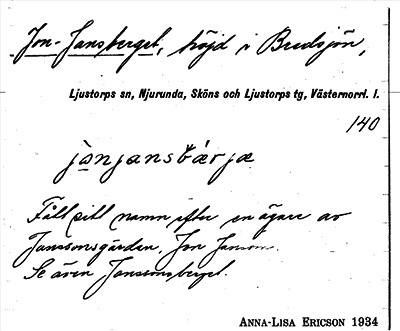 Jon-Jansberget, höjd i Bredsjön,
Ljustorps sn, Njurunda, Sköns och Ljustorps tg, Västernorrl. l.
140
jànjansbárjæ
Fått sitt namn efter en ägare av
Janssonsgården, Jon Jansson.
Se även Janssonsberget.
ANNA-LISA ERICSON 1934